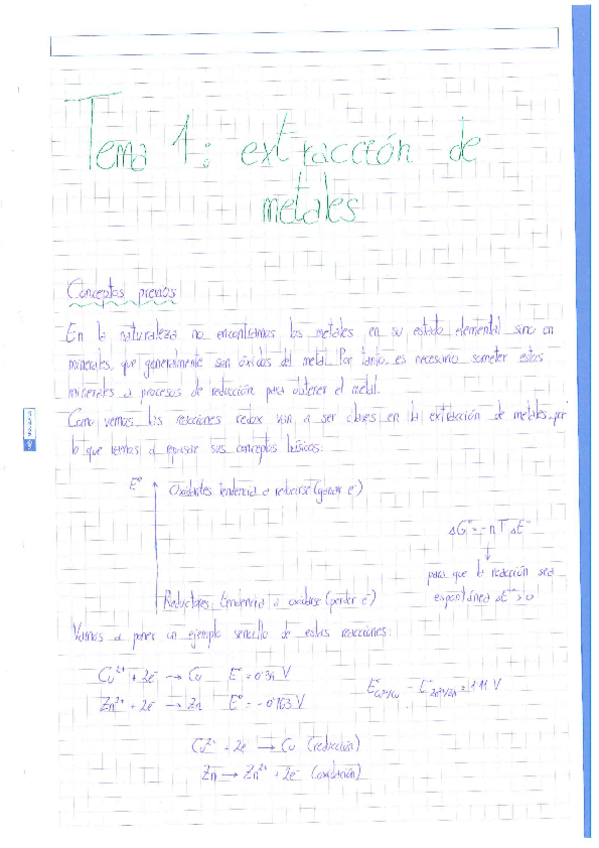 Tema 1: extracción de
metales
Conceptos previos
En la naturaleza no encontramos los metales en su estado elemental sino en
minerales, que generalmente son óxidos del metal. Por tanto, es necesario someter estos
minerales a procesos de reducción para obtener el metal.
Como vemos las reacciones redox van a ser claves en la extracción de metales, por
lo que vamos a repasar sus conceptos básicos:
E° Oxidantes tendencia a reducirse (ganar e⁻)
ΔG° = -nTΔE°
para que la reacción sea
espontánea ΔE° > 0
Reductores tendencia a oxidarse (perder e⁻)
Vamos a poner un ejemplo sencillo de estas reacciones:
Cu²⁺ + 2e⁻ → Cu E° = 0'34 V
Zn²⁺ + 2e⁻ → Zn E° = -0'763 V
E°Cu²⁺/Cu - E°Zn²⁺/Zn = 1'11 V
Cu²⁺ + 2e⁻ → Cu (reducción)
Zn → Zn²⁺ + 2e⁻ (oxidación)